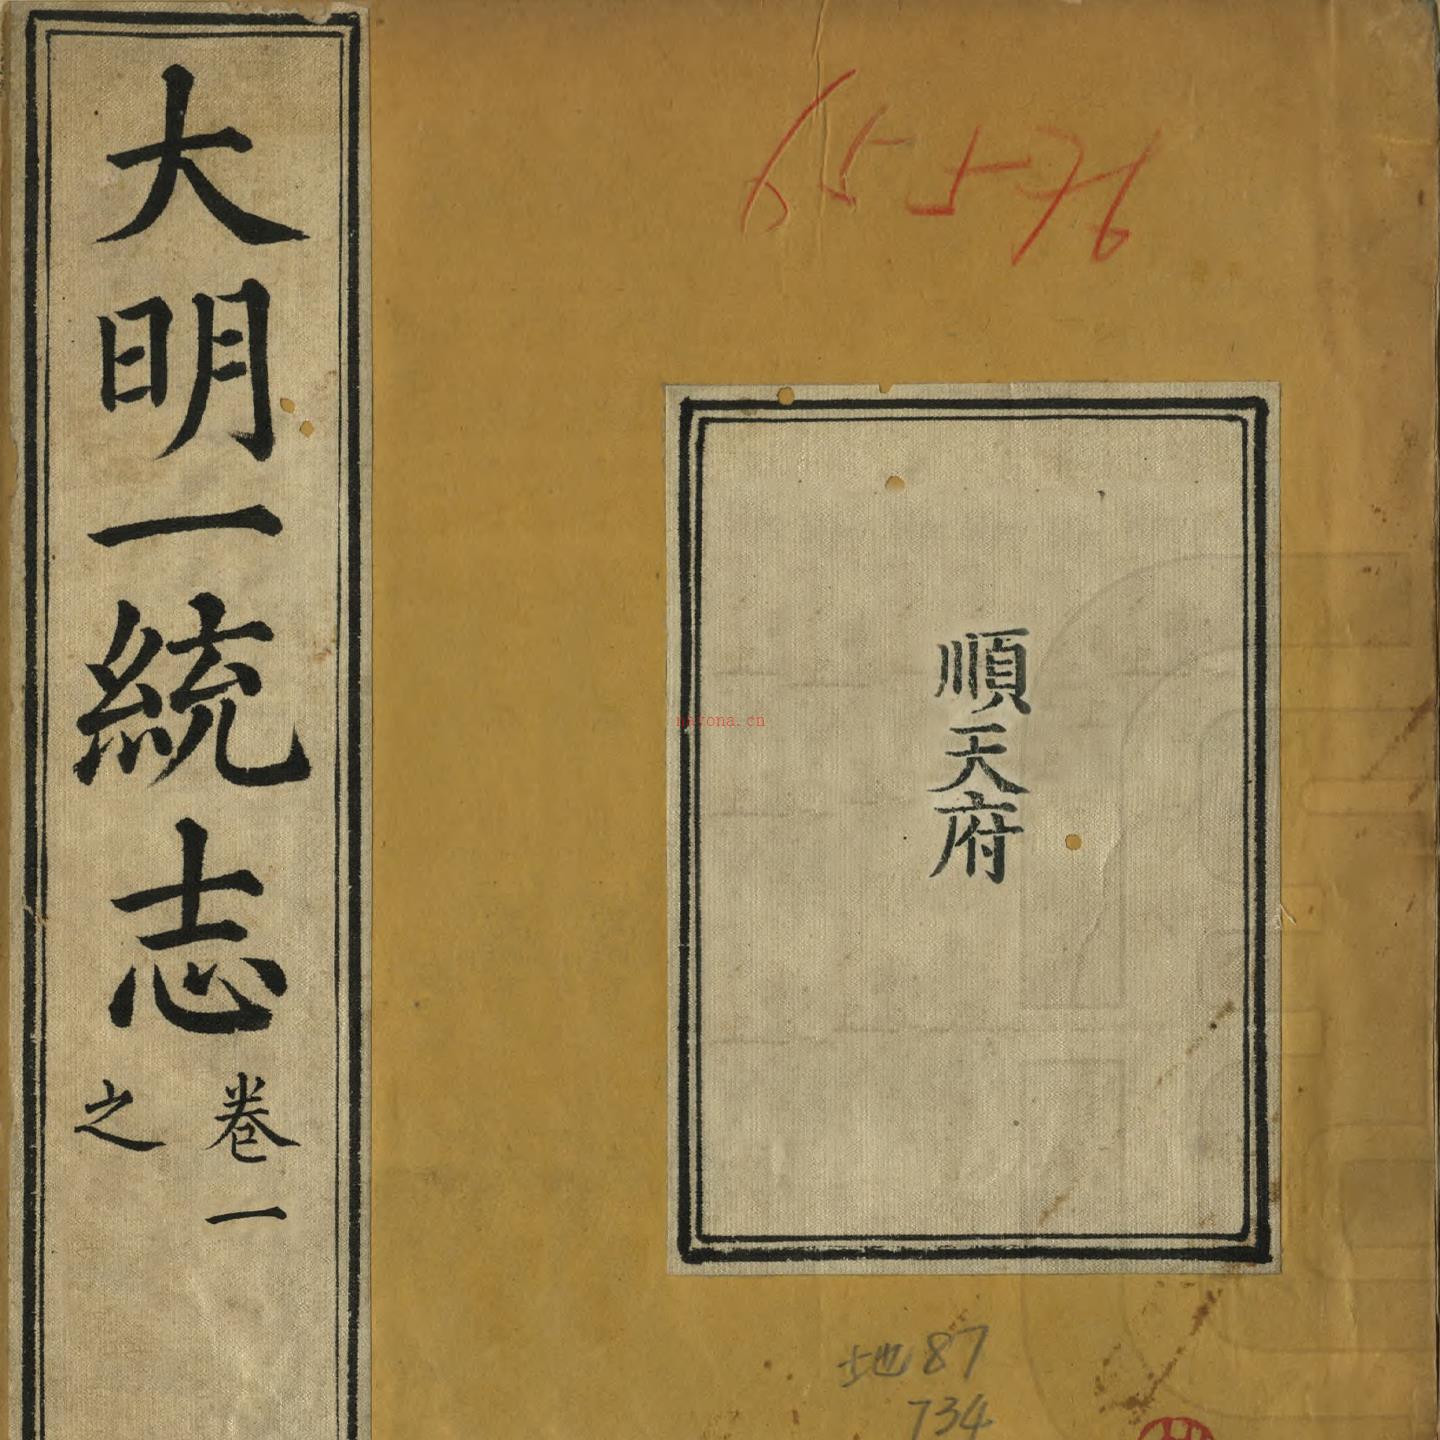 大明一統志
卷一
之
65576
順天府
navona.cn
地87
734